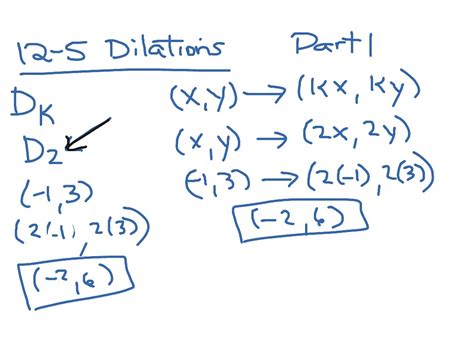 12-5 Dilations Part 1
D_K (x,y) → (Kx, Ky)
D_2 (x,y) → (2x, 2y)
(-1,3) (-1,3) → (2(-1), 2(3))
(2(-1), 2(3)) (-2,6)
(-2,6)